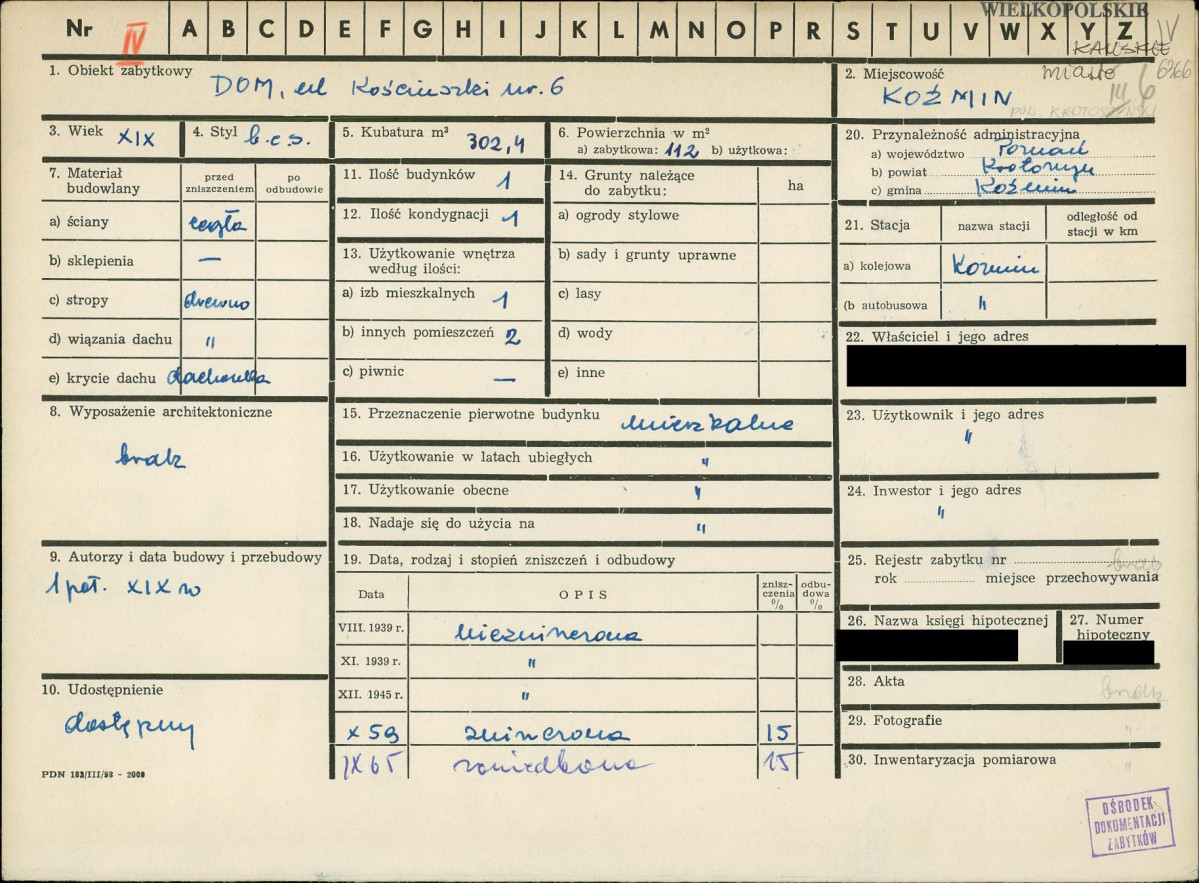 WIELKOPOLSKIE
Nr IV A B C D E F G H I J K L M N O P R S T U V W X Y Z IV
KALISKIE
1. Obiekt zabytkowy
DOM, ul Kościuszki nr. 6
2. Miejscowość miasto 6366
KOŹMIN
III 6
POW. KROTOSZYŃSKI
3. Wiek XIX
4. Styl b.c.s.
5. Kubatura m³ 302,4
6. Powierzchnia w m²
a) zabytkowa: 112 b) użytkowa:
20. Przynależność administracyjna
a) województwo Poznań
b) powiat Krotoszyn
c) gmina Koźmin
7. Materiał budowlany
przed zniszczeniem
po odbudowie
a) ściany cegła
b) sklepienia —
c) stropy drewno
d) wiązania dachu "
e) krycie dachu dachówka
11. Ilość budynków 1
12. Ilość kondygnacji 1
13. Użytkowanie wnętrza
według ilości:
a) izb mieszkalnych 1
b) innych pomieszczeń 2
c) piwnic —
14. Grunty należące
do zabytku:
ha
a) ogrody stylowe
b) sady i grunty uprawne
c) lasy
d) wody
e) inne
21. Stacja
nazwa stacji
odległość od
stacji w km
a) kolejowa Koźmin
(b autobusowa "
22. Właściciel i jego adres
8. Wyposażenie architektoniczne
brak
15. Przeznaczenie pierwotne budynku mieszkalne
16. Użytkowanie w latach ubiegłych "
17. Użytkowanie obecne "
18. Nadaje się do użycia na "
23. Użytkownik i jego adres
"
24. Inwestor i jego adres
"
9. Autorzy i data budowy i przebudowy
1 poł. XIX w
19. Data, rodzaj i stopień zniszczeń i odbudowy
Data
OPIS
zniszczenia %
odbudowa %
VIII. 1939 r. niezniszczona
XI. 1939 r. "
XII. 1945 r. "
X 59 zniszczona 15
IX 65 zaniedbana 15
25. Rejestr zabytku nr brak
rok miejsce przechowywania
26. Nazwa księgi hipotecznej
27. Numer
hipoteczny
28. Akta brak
29. Fotografie "
30. Inwentaryzacja pomiarowa "
10. Udostępnienie
dostępny
PDN 183/III/58 - 2000
OŚRODEK
DOKUMENTACJI
ZABYTKÓW